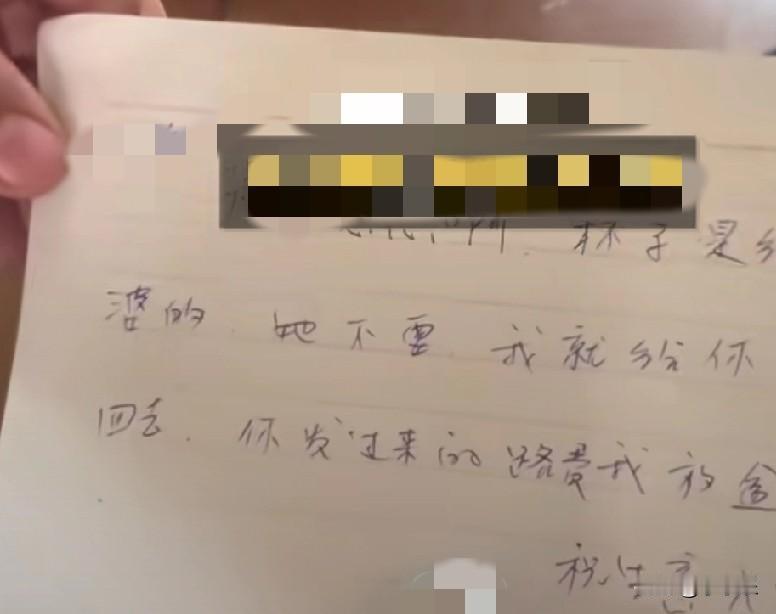 杯子是给
婆的.她不要.我就给你
回去.你发过来的路费我放盒
祝生意兴